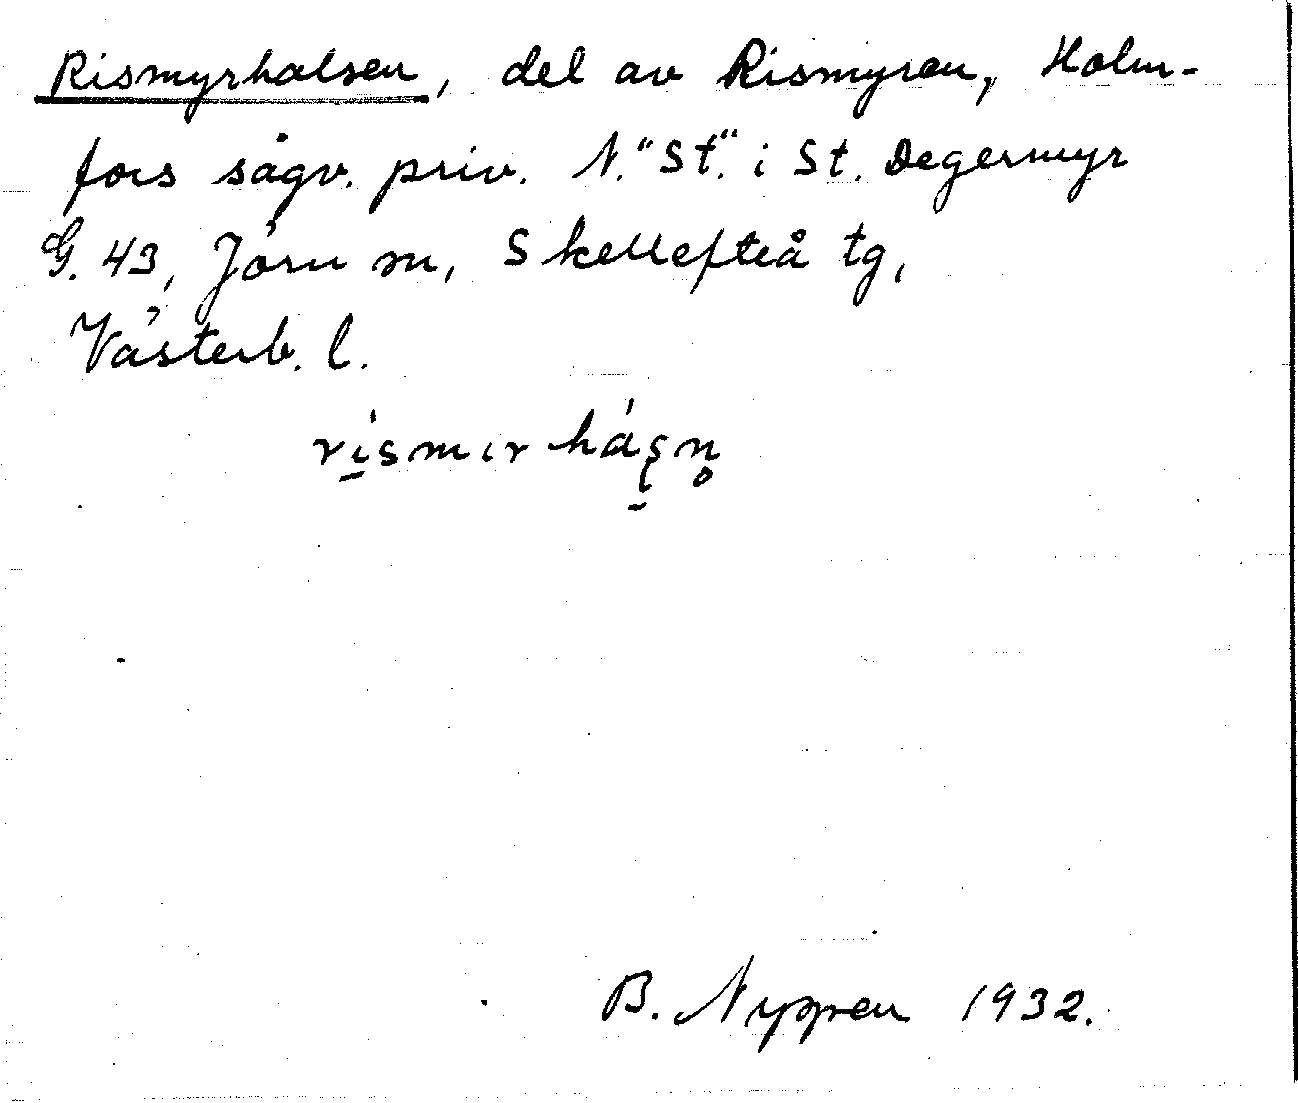 Rismyrhalsen, del av Rismyren, Holm-
fors sågv. priv. N. "St." i St. Degermyr
G. 43, Jörn sn, Skellefteå tg,
Västerb. l.
rismır
B. Nygren 1932.